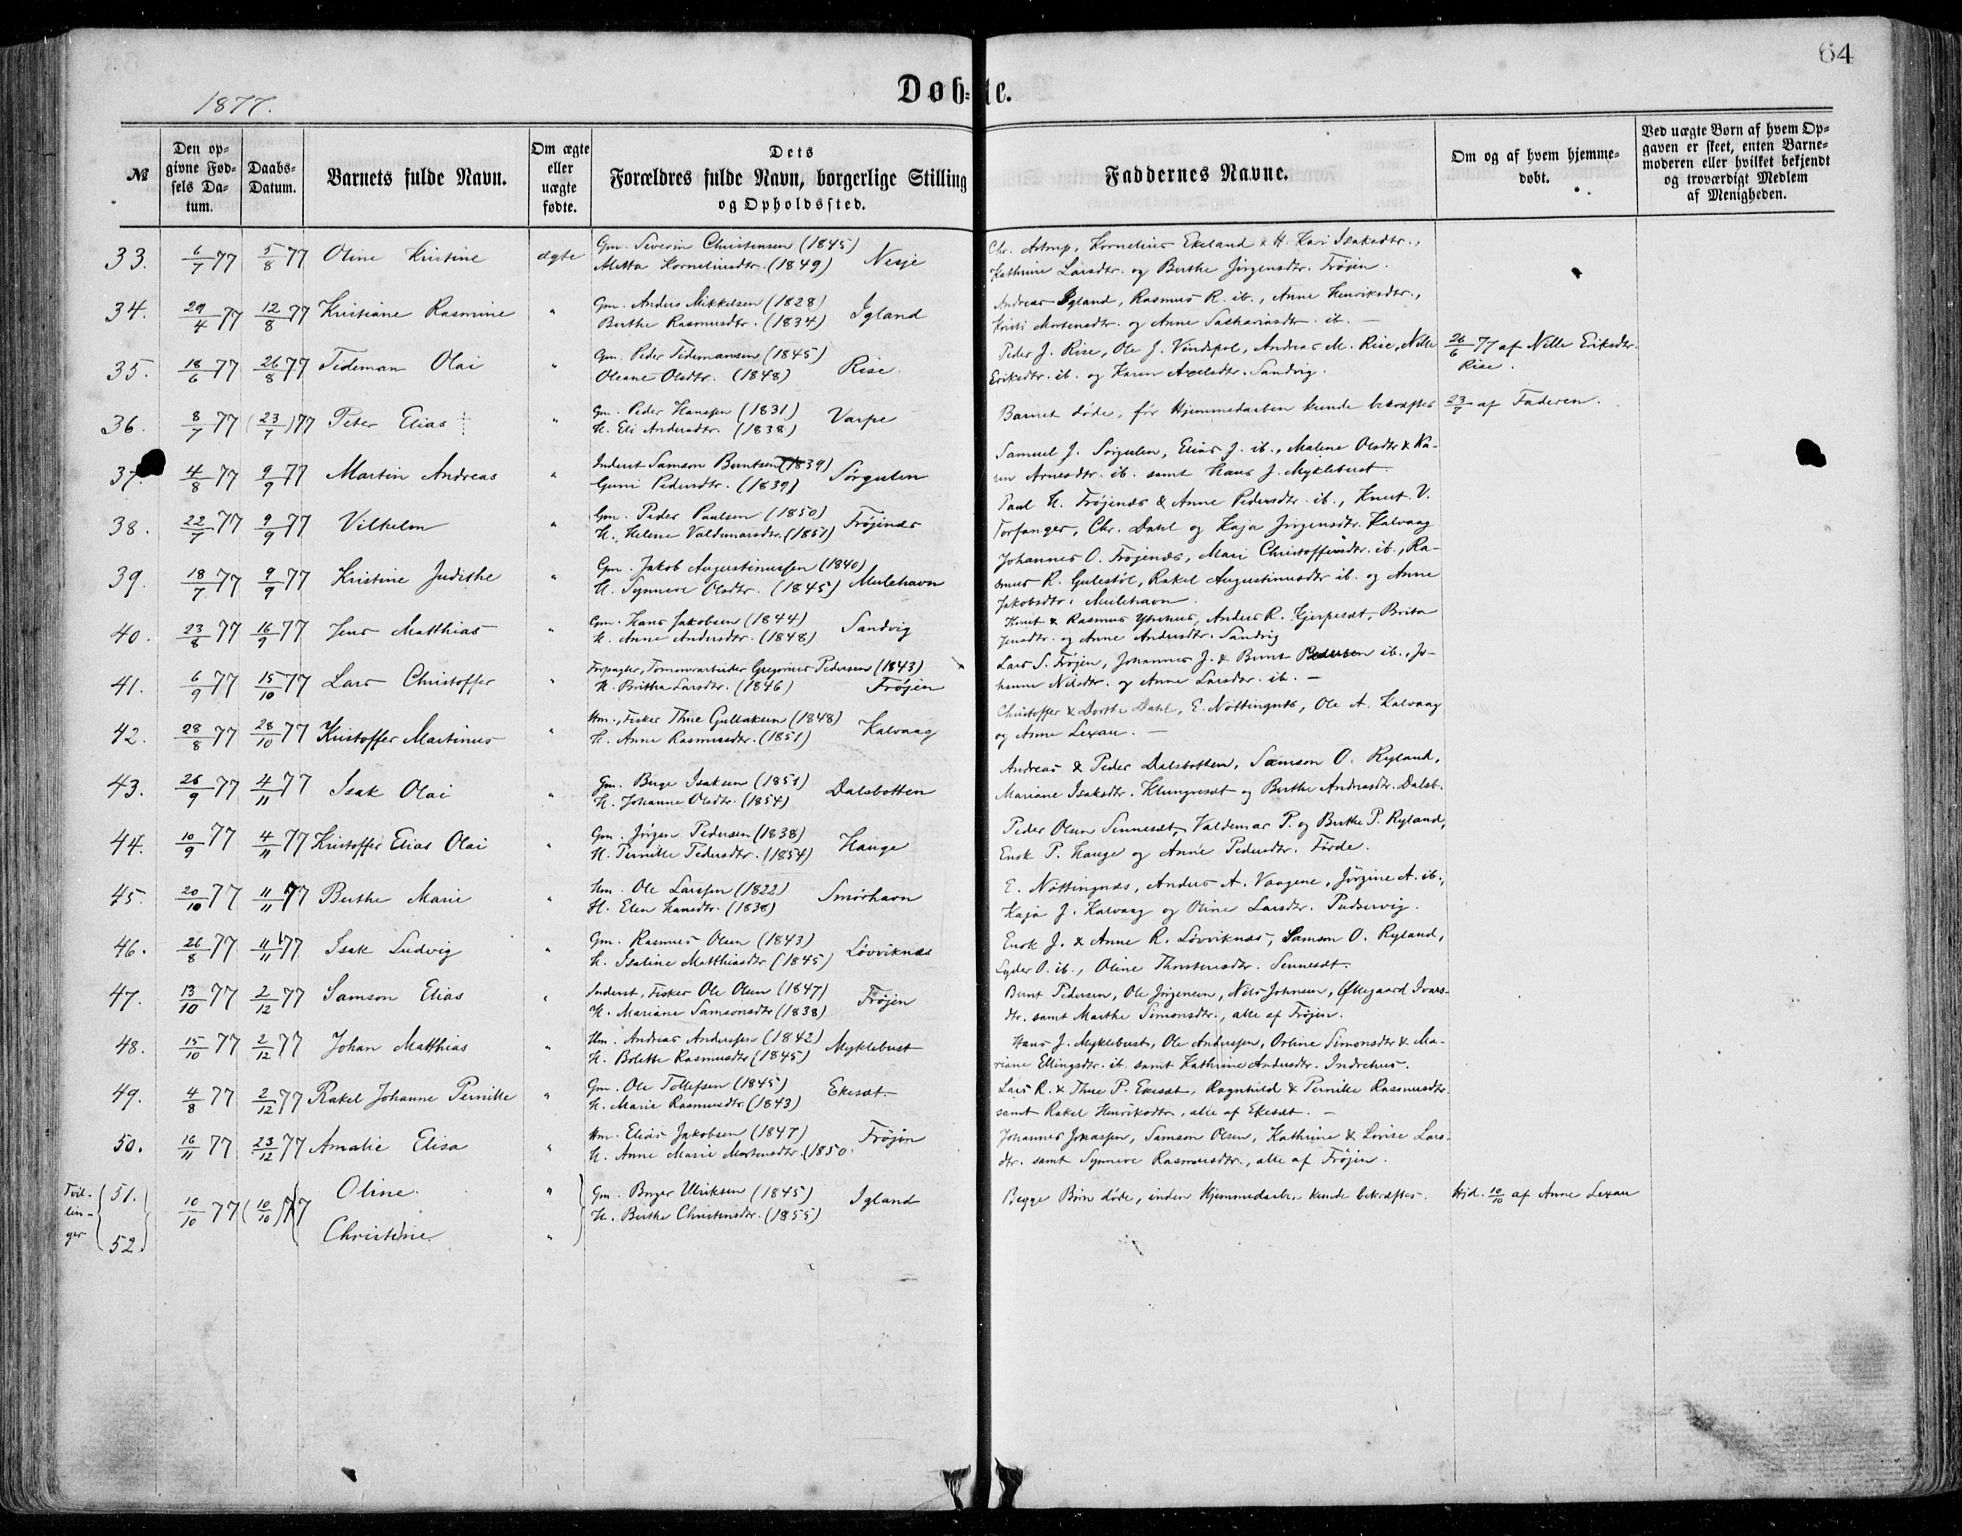 64
Døb-te.
1877.
№
Den opgivne Fødsels Datum.
Daabs-Datum.
Barnets fulde Navn.
Om ægte eller uægte fødte.
Dets Forældres fulde Navn, borgerlige Stilling og Opholdssted.
Faddernes Navne.
Om og af hvem hjemmedøbt.
Ved uægte Børn af hvem Opgaven er skeet, enten Barnemoderen eller hvilket bekjendt og troværdigt Medlem af Menigheden.
33. 6/7 77 5/8 77 Oline Kristine ægte Gm. Severin Christensen (1845) Nesje Chr. Astrup, Kornelius Ekeland & H. Kari Isaksdtr.,
Aletta Korneliusdtr. (1849) Kathrine Larsdtr. og Berthe Jørgensdtr. Frøjen.
34. 29/4 77 12/8 77 Kristiane Rasmine " Gm. Anders Mikkelsen (1828) Igland Andreas Igland, Rasmus R. ib., Anne Henriksdtr.,
Berthe Rasmusdtr. (1834) Kristi Mortensdtr. og Anne Sachariasdtr. ib. —
35. 18/6 77 26/8 77 Tideman Olai " Gm. Peder Tidemansen (1845) Rise. Peder J. Rise, Ole J. Vindspol, Andreas M. Rise, Nille 26/6 77 af Nille Eriksdtr.
Oleane Olsdtr. (1848) Eriksdtr. ib. og Karen Axelsdtr. Sandvig. Rise.
36. 8/7 77 (23/7) 77 Peter Elias " Gm. Peder Hanssen (1831) Varpe Barnet døde, før Hjemmedaaben kunde bekræftes 23/7 af Faderen.
H. Eli Andersdtr. (1838)
37. 4/8 77 9/9 77 Martin Andreas " Inderst Samson Berntsen (1839) Sørgulen Samuel J. Sørgulen, Elias J. ib., Malene Olsdtr & Ka-
Guri Pedersdtr. (1839) ren Arnesdtr. ib. samt Hans J. Myklebust.
38. 22/7 77 9/9 77 Vilhelm " Gm. Peder Paulsen (1850) Frøjenæs Paul H. Frøjenæs & Anne Pedersdtr. ib., Knut V.
H. Helene Valdemarsdtr. (1851) Torfanger, Chr. Dahl og Kaja Jørgensdtr. Kalvaag
39. 18/7 77 9/9 77 Kristine Judithe " Gm. Jakob Augustinussen (1840) Mulehavn Johannes O. Frøjenæs, Mari Christoffersdtr. ib., Ra-
H. Synneve Olsdtr. (1845) smus R. Gulestøl, Rakel Augustinusdtr. ib. og Anne
Jakobsdtr. Mulehavn.
40. 23/8 77 16/9 77 Jens Matthias " Gm. Hans Jakobsen (1844) Sandvig Knut & Rasmus Ytrehus, Anders R. Hjerpesæt, Brita
H. Anne Andersdtr. (1848) Jensdtr. og Anne Andersdtr. Sandvig
41. 6/9 77 15/10 77 Lars Christoffer " Forpagter, Tomrerarbeider Gregorius Pedersen (1843) Lars S. Frøjen, Johannes J. & Bernt Pedersen ib., Jo-
H. Brithe Larsdtr. (1846) Frøjen hanne Nilsdtr. og Anne Larsdtr. ib. —
42. 28/8 77 28/10 77 Kristoffer Martinus " Hm., Fisker Thue Gullaksen (1848) Kalvaag Christoffer & Dorthe Dahl, E. Nøttingnæs, Ole A. Kalvaag
H. Anne Rasmusdtr. (1851) og Anne Lexau. —
43. 26/9 77 4/11 77 Isak Olai " Gm. Berge Isaksen (1851) Dalsbotten Andreas & Peder Dalsbotten, Samson O. Ryland,
H. Johanne Olsdtr. (1854) Mariane Isaksdtr. Klungresæt og Berthe Andreasdtr. Dalsb.
44. 10/9 77 4/11 77 Kristoffer Elias Olai " Gm. Jørgen Pedersen (1838) Hauge Peder Olsen Sennesæt, Valdemar P. og Berthe P. Ryland,
H. Pernille Pedersdtr. (1854) Enok P. Hauge og Anne Pedersdtr. Førde.
45. 20/10 77 11/11 77 Berthe Marie " Hm. Ole Larssen (1822) Smørhavn E. Nøttingnæs, Anders A. Vaagene, Jørgine A. ib.,
H. Elen Hansdtr. (1838) Kaja J. Kalvaag og Oline Larsdtr. Pudservig.
46. 26/8 77 11/11 77 Isak Ludvig " Gm. Rasmus Olsen (1843) Løvviknæs Enok J. & Anne R. Løvviknæs, Samson O. Ryland,
H. Iseline Matthiasdtr (1845) Lyder O. ib., Oline Thorstensdtr. Sennesæt.
47. 13/10 77 2/12 77 Samson Elias " Inderst, Fisker Ole Olsen (1847) Frøjen Bernt Pedersen, Ole Jørgensen, Nils Johnsen, Øllegaard Ivars-
H. Mariane Samsonsdtr (1838) dtr. samt Marthe Simonsdtr., alle af Frøjen.
48. 15/10 77 2/12 77 Johan Matthias " Hm. Andreas Anderssen (1842) Myklebust Hans J. Myklebust, Ole Anderssen, Orline Simonsdtr & Ma-
H. Bolette Rasmusdtr (1845) riane Ellingsdtr. ib. samt Kathrine Andersdtr. Indrehus.
49. 4/8 77 2/12 77 Rakel Johanne Pernille " Gm. Ole Tollefsen (1845) Ekesæt. Lars R. & Thue P. Ekesæt, Ragnhild & Pernille Rasmusdtr.
H. Marie Rasmusdtr. (1843) samt Rakel Henriksdtr., alle af Ekesæt. —
50. 16/11 77 23/12 77 Amalie Elisa " Hm. Elias Jakobsen (1847) Frøjen Johannes Jonassen, Samson Olsen, Kathrine & Lovise Lars-
H. Anne Marie Mortensdtr. (1850. dtr. samt Synneve Rasmusdtr., alle af Frøjen.
Tvil-lin-ger 51. 10/10 77 (10/10) 77 Oline. " Gm. Berger Ulriksen (1845) Igland Begge Børn døde, inden Hjemmedaaben kunde bekræftes. Hjd. 10/10 af Anne Lexau
H. Berthe Christensdtr. (1855)
52. Christine. "